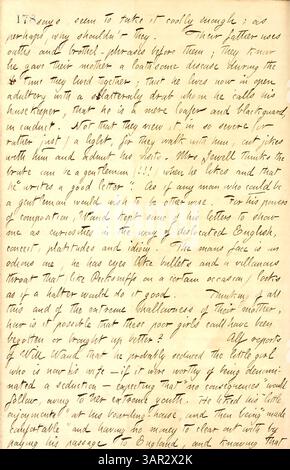 178
seem to take it coolly enough; as
perhaps why shouldn't they. Their father uses
oaths and brothel-phrases before them; they know
he gave their mother a loathsome disease during the
time they lived together; that he lives now in open
adultery with a slatternly drab whom he calls his
housekeeper, that he is a mere loafer and blackguard
in conduct. Not that they view it in so severe (or
rather just) a light, for they walk with him, cut jokes
with him and admit his visits. Mrs Jewell thinks the
brute can be a gentleman (!!!) when he likes and that
he "writes a good letter"! As if any man who could be
a gentleman would wish to be otherwise. For his powers
of composition, kept some of his letters to show
me as curiosities in the way of dislocated English,
conceit, platitudes and idiocy. The man's face is an
odious one he has eyes like bullets and a villainous
throat that like Pecksniff's on a certain occasion, looks
as if a halter would do it good. Thinking of all
this and of the extreme shallowness of their mother,
how is it possible that these poor girls could have been
begotten or brought up better? Alf reports
of Will that he probably seduced the little girl
who is now his wife — if it were worthy of being denomi-
nated a seduction — expecting that "no consequences" would
follow, owing to her extreme youth. He liked his "little
enjoyments" at his boarding-house, and then being "made
comfortable" and having no money to clear out with by
paying his passage to England, and knowing that
alamy
Image ID: 3AR2X2K
www.alamy.com